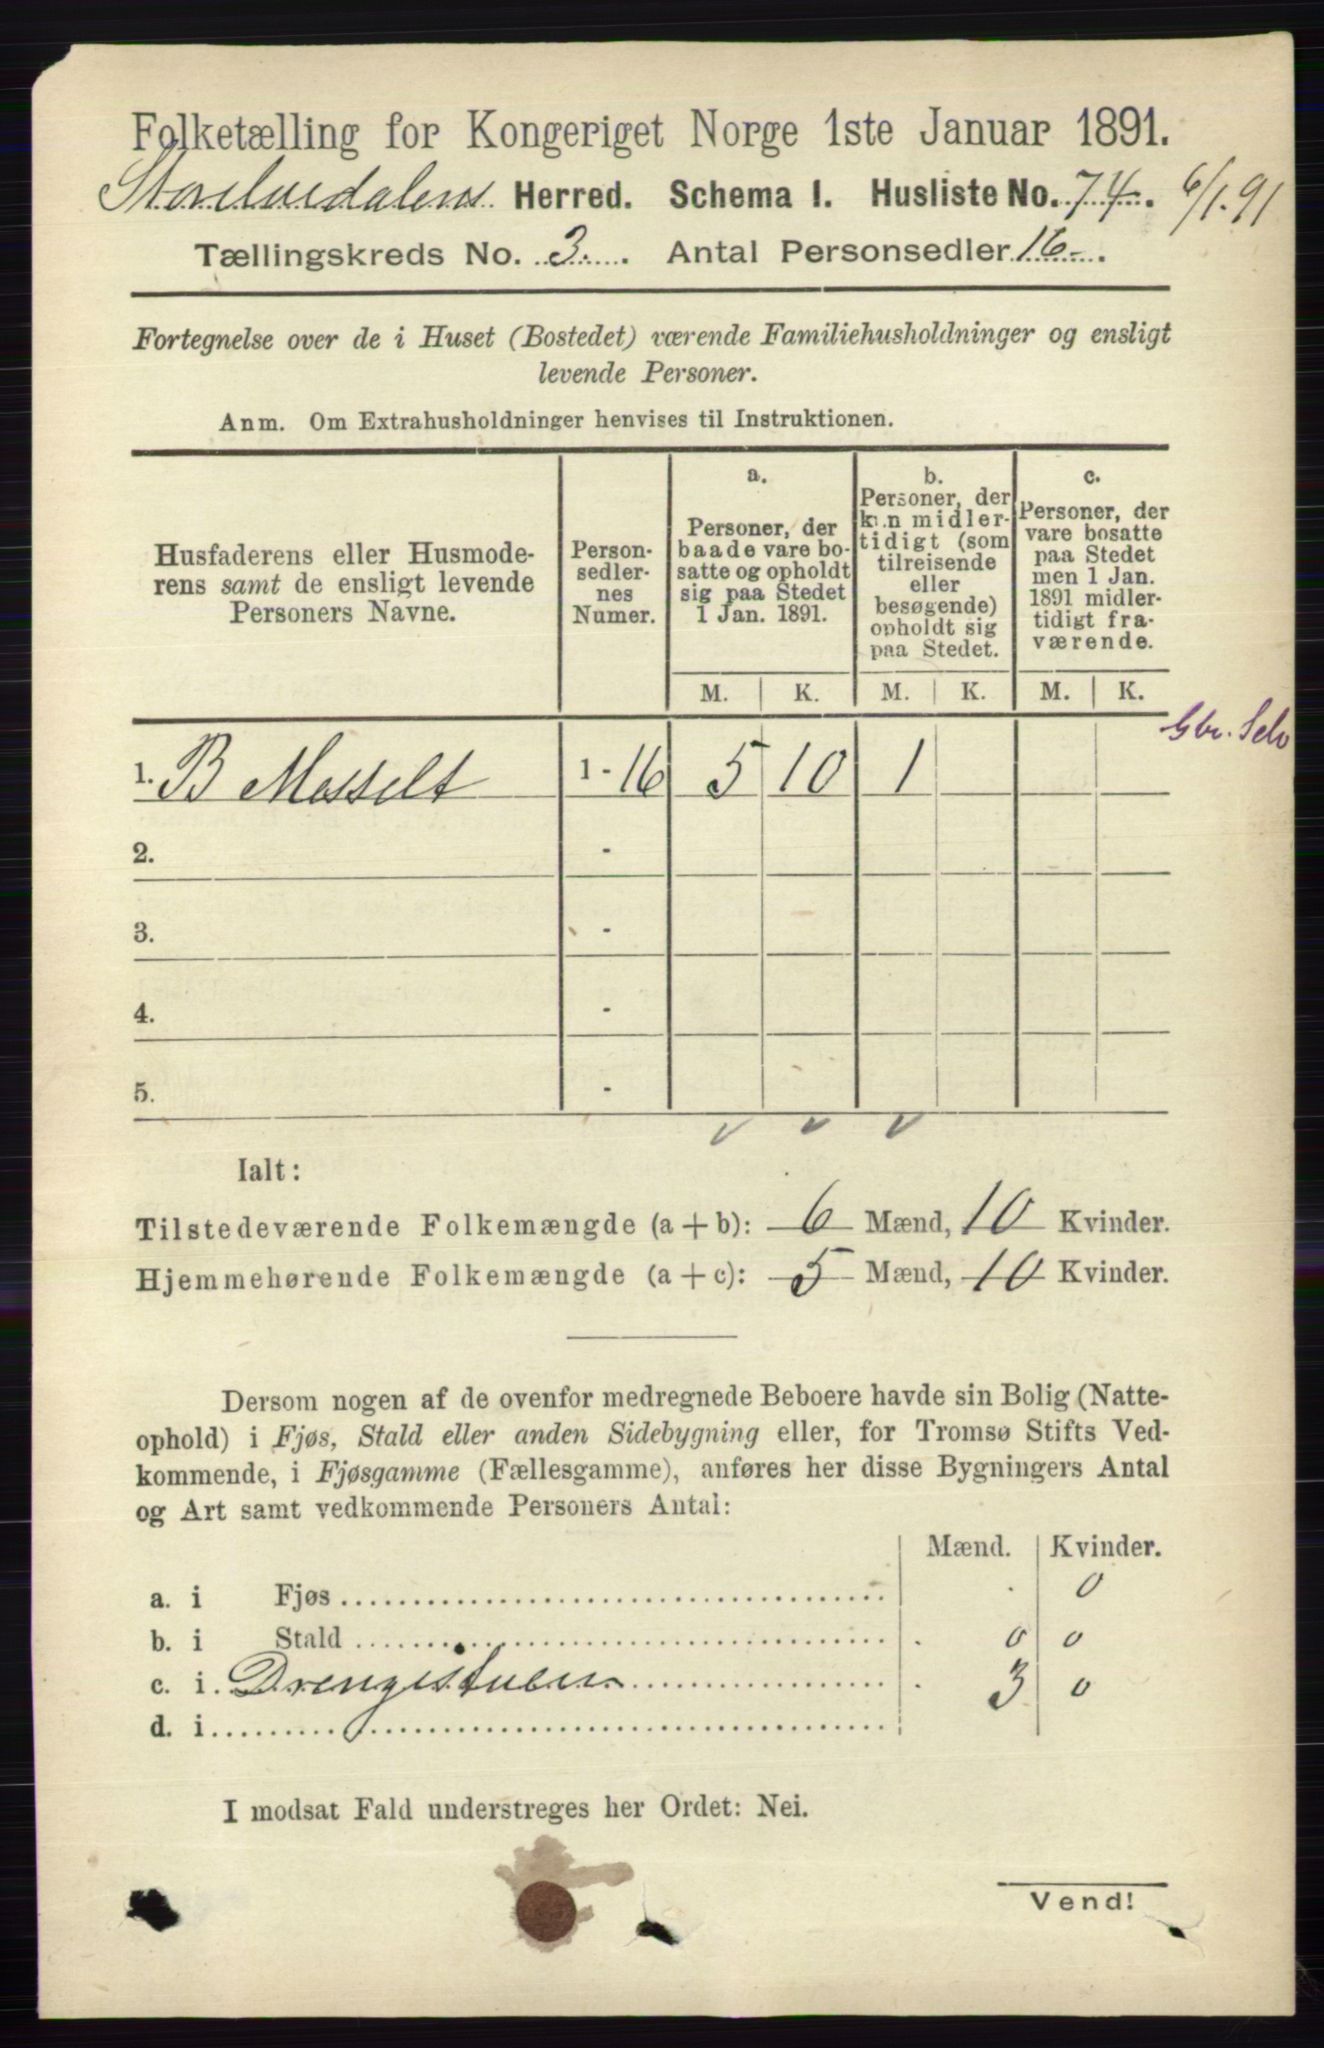 Folketælling for Kongeriget Norge 1ste Januar 1891.
Storelvedalens Herred. Schema I. Husliste No. 74. 6/1.91
Tællingskreds No. 3. Antal Personsedler 16.
Fortegnelse over de i Huset (Bostedet) værende Familiehusholdninger og ensligt
levende Personer.
Anm. Om Extrahusholdninger henvises til Instruktionen.
Husfaderens eller Husmode-
rens samt de ensligt levende
Personers Navne.
Person-
sedler-
nes
Numer.
a.
Personer, der
baade vare bo-
satte og opholdt
sig paa Stedet
1 Jan. 1891.
b.
Personer, der
kun midler-
tidigt (som
tilreisende
eller
besøgende)
opholdt sig
paa Stedet.
c.
Personer, der
vare bosatte
paa Stedet
men 1 Jan.
1891 midler-
tidigt fra-
værende.
M. K. M. K. M. K.
Gbr. Selv
1. B Messelt 1 - 16 5 10 1
2. -
3. -
4. -
5. -
Ialt:
Tilstedeværende Folkemængde (a + b): 6 Mænd, 10 Kvinder.
Hjemmehørende Folkemængde (a + c): 5 Mænd, 10 Kvinder.
Dersom nogen af de ovenfor medregnede Beboere havde sin Bolig (Natte-
ophold) i Fjøs, Stald eller anden Sidebygning eller, for Tromsø Stifts Ved-
kommende, i Fjøsgamme (Fællesgamme), anføres her disse Bygningers Antal
og Art samt vedkommende Personers Antal:
Mænd. Kvinder.
a. i Fjøs . 0
b. i Stald . 0 0
c. i Drengestuen . 3 0
d. i
I modsat Fald understreges her Ordet: Nei.
Vend!